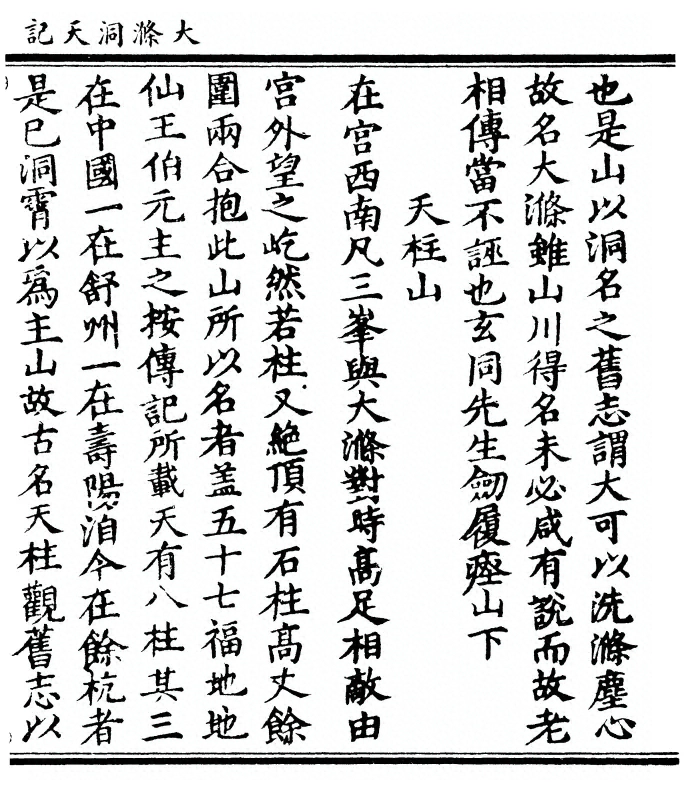 大滌洞天記
也是山以洞名之舊志謂大可以洗滌塵心
故名大滌雖山川得名未必咸有說而故老
相傳當不誣也玄同先生劒履瘞山下
天柱山
在宮西南凡三峯與大滌對峙高足相敵由
宮外望之屹然若柱又絕頂有石柱高丈餘
圍兩合抱此山所以名者葢五十七福地地
仙王伯元主之按傳記所載天有八柱其三
在中國一在舒州一在壽陽洎今在餘杭者
是巳洞霄以爲主山故古名天柱觀舊志以